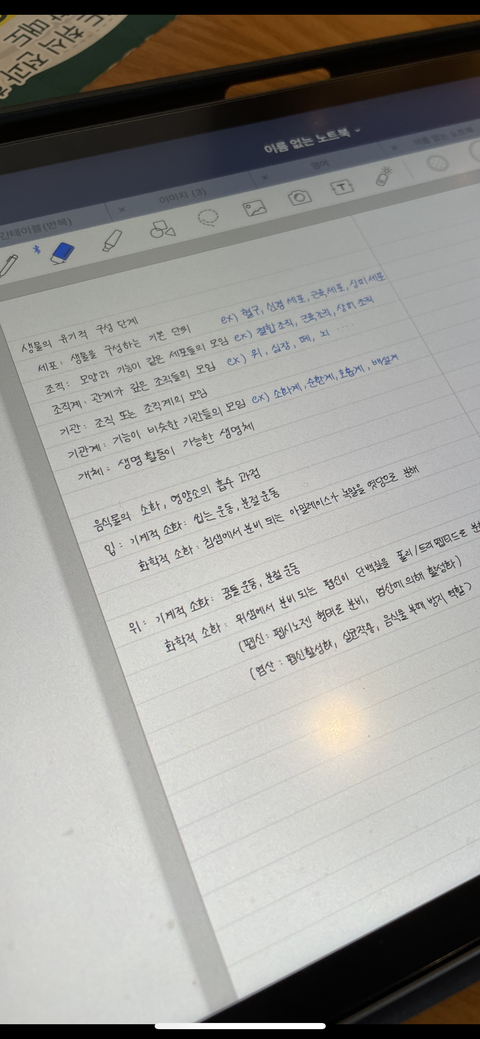 이름 없는 노트북
이미지 (3)
영어
이름 없는 노트북
생물의 유기적 구성 단계
세포: 생물을 구성하는 기본 단위 ex) 혈구, 신경 세포, 근육 세포, 상피 세포
조직: 모양과 기능이 같은 세포들의 모임 ex) 결합 조직, 근육 조직, 상피 조직
조직계: 관계가 깊은 조직들의 모임 ex) 위, 심장, 폐, 뇌 .....
기관: 조직 또는 조직계의 모임
기관계: 기능이 비슷한 기관들의 모임 ex) 소화계, 순환계, 호흡계, 배설계
개체: 생명 활동이 가능한 생명체
음식물의 소화, 영양소의 흡수 과정
입: 기계적 소화: 씹는 운동, 분절 운동
화학적 소화: 침샘에서 분비 되는 아밀레이스가 녹말을 엿당으로 분해
위: 기계적 소화: 꿈틀 운동, 분절 운동
화학적 소화: 위샘에서 분비 되는 펩신이 단백질을 폴리/트리펩티드로
(펩신: 펩시노젠 형태로 분비, 염산에 의해 활성화)
(염산: 펩신활성화, 살균작용, 음식물 부패 방지 역할)